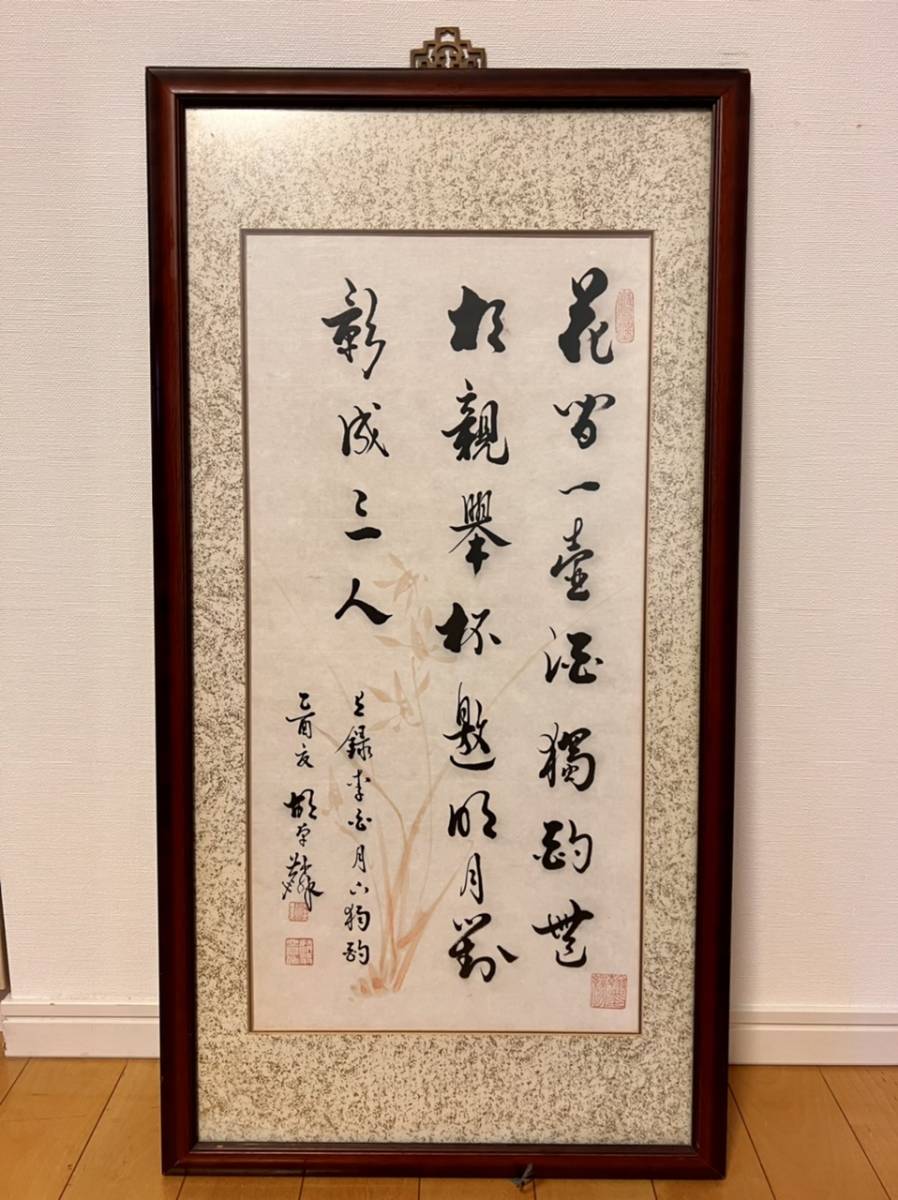 花間一壺酒獨酌無
相親舉杯邀明月對
影成三人
上錄李白月下獨酌
乙酉夏 胡